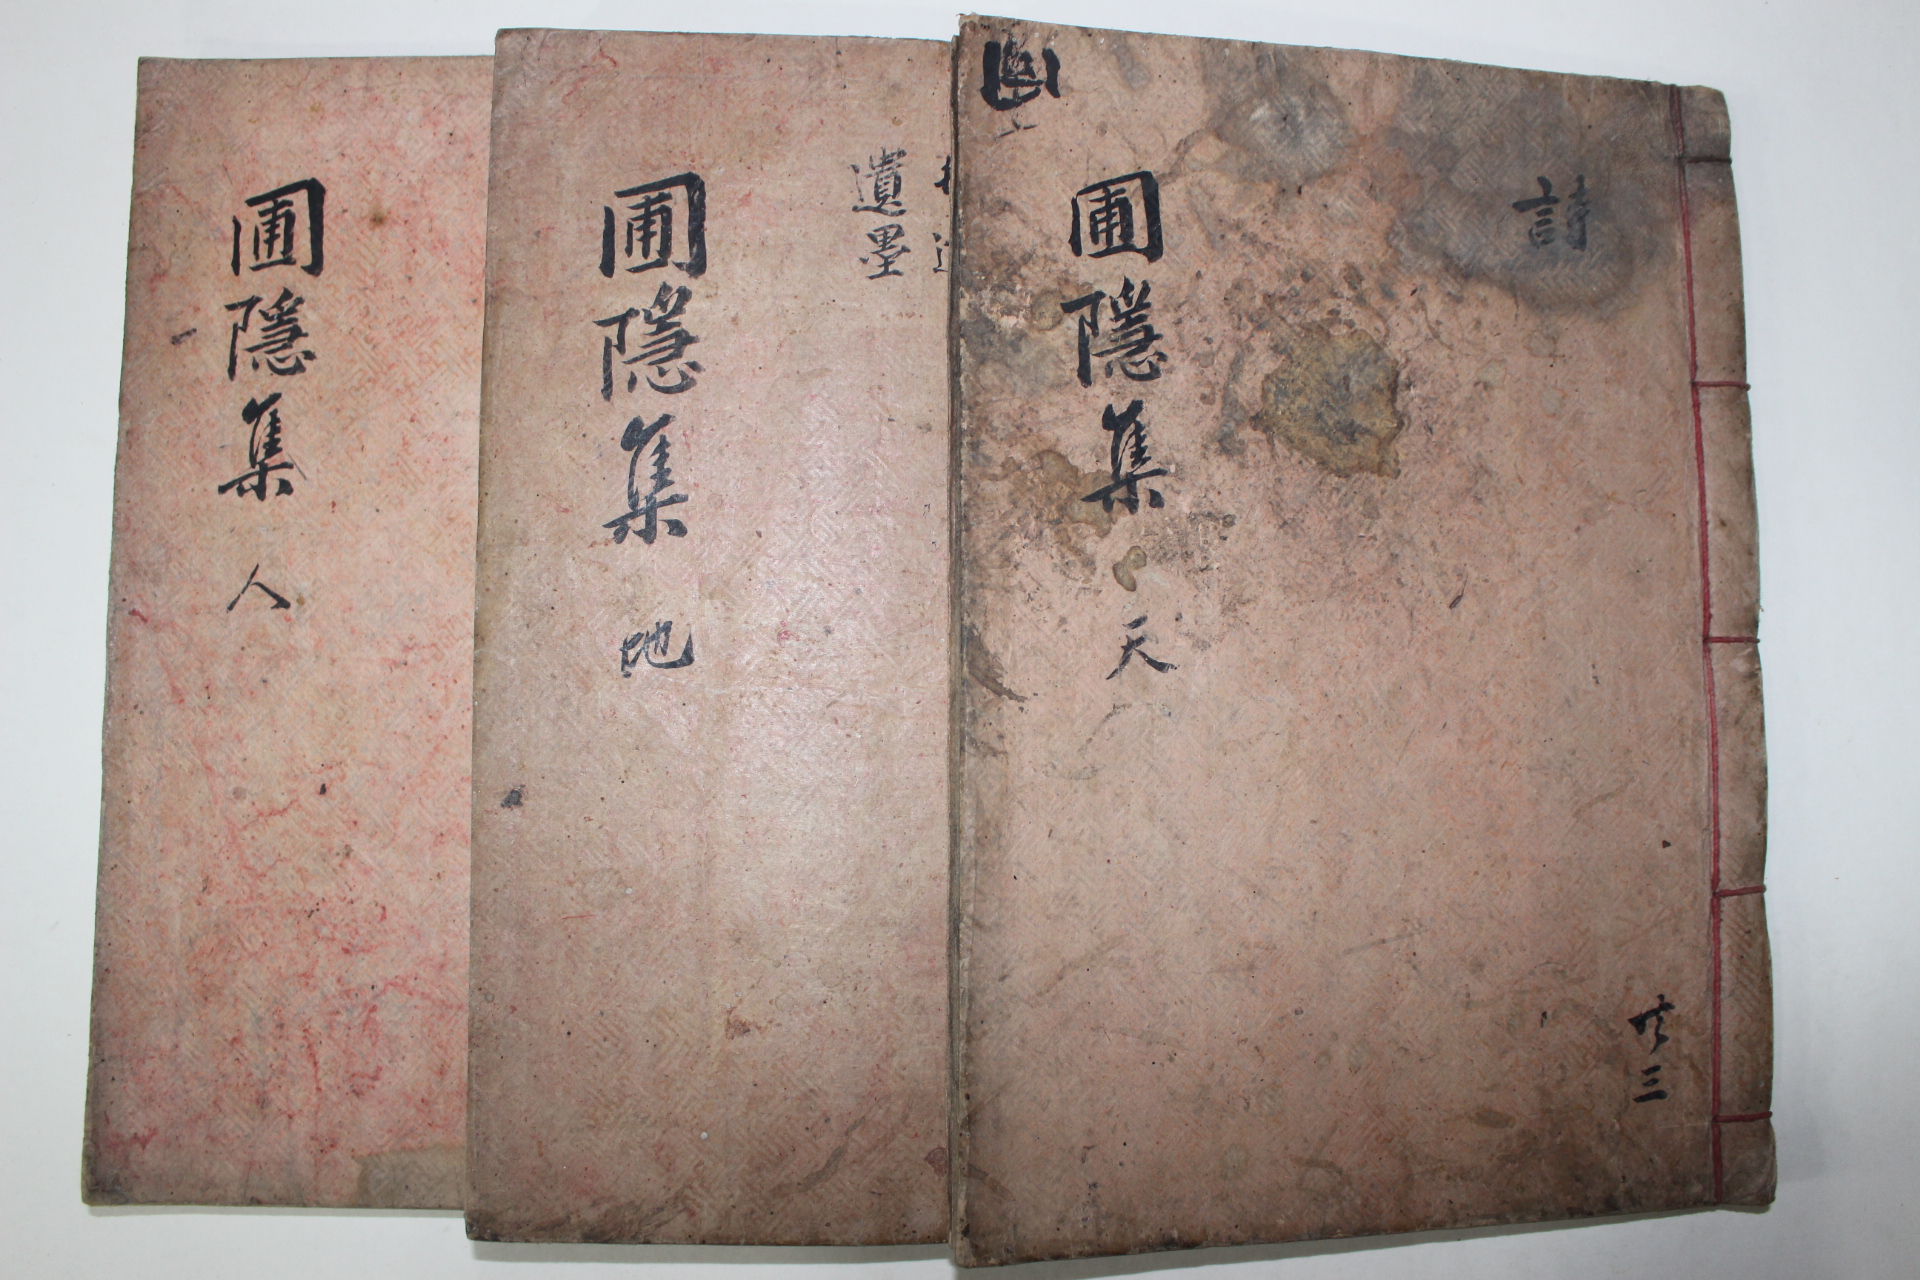 詩
共三
圃隱集 天
遺墨
圃隱集 地
圃隱集 人